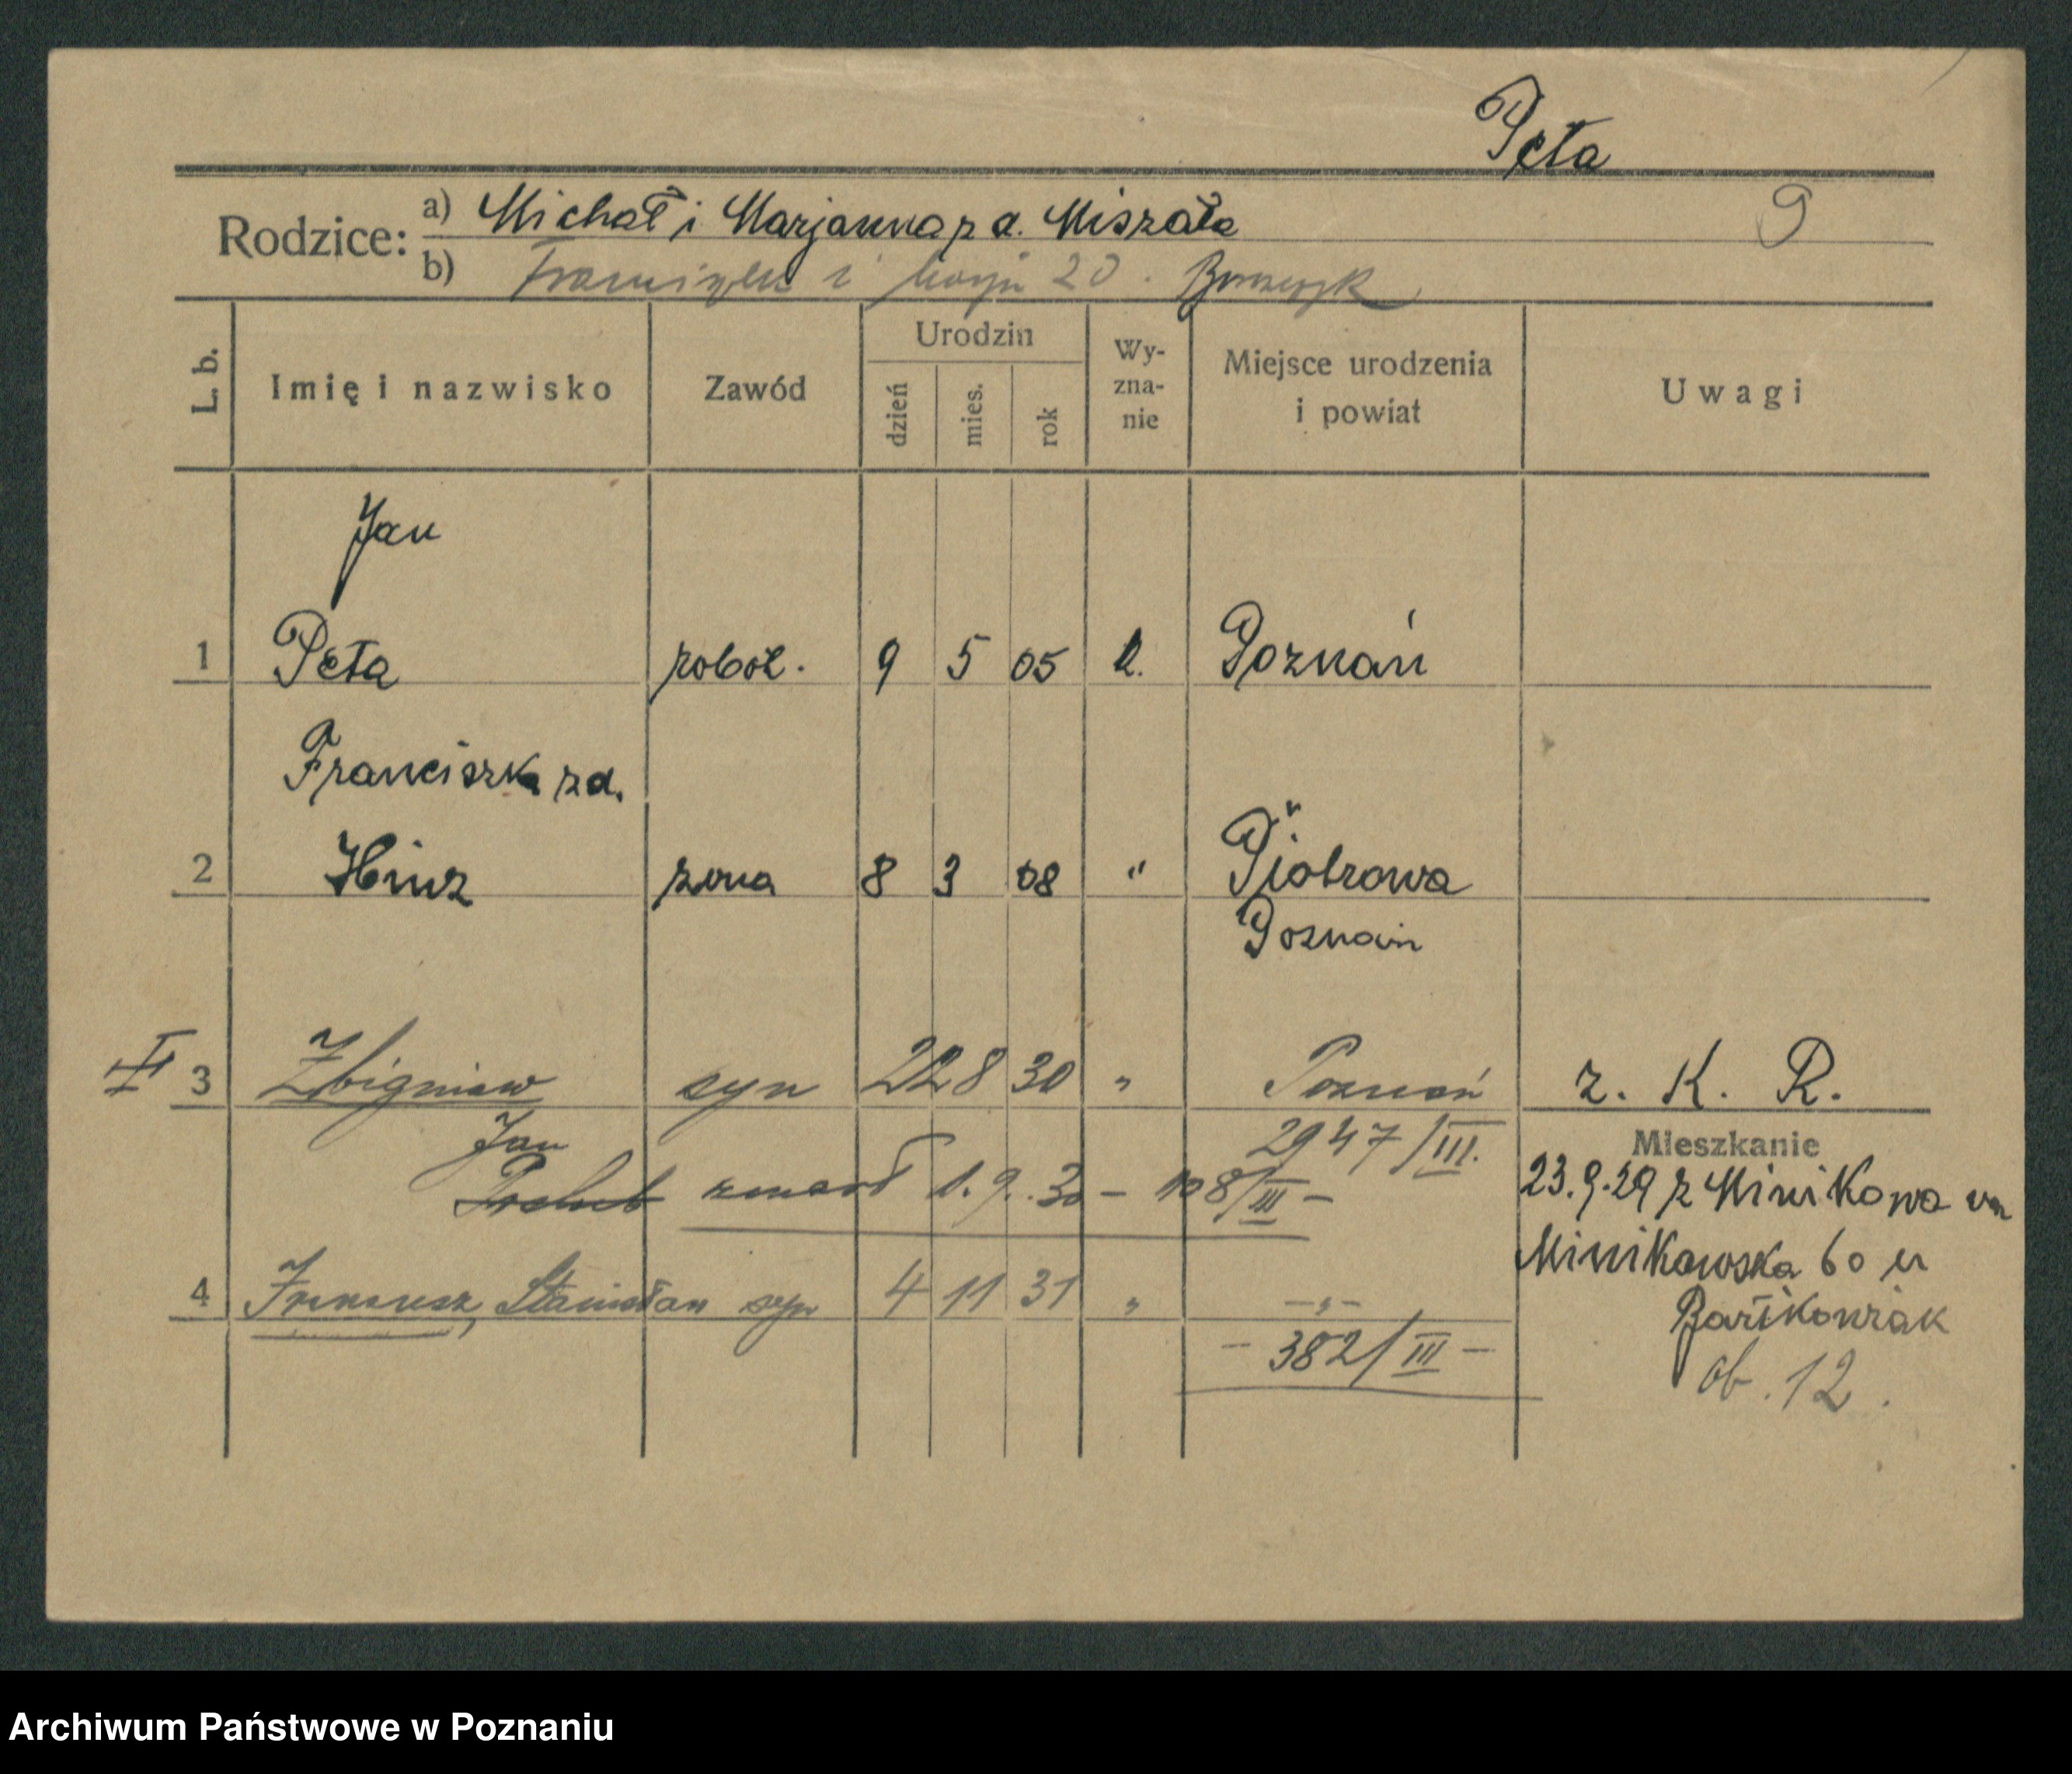 Peta
Rodzice: a) Michał i Marjanna z d. Miszała 9
b) Franciszek i z d.
L. b. Imię i nazwisko Zawód Urodzin dzień mies. rok Wy-zna-nie Miejsce urodzenia i powiat Uwagi
Jan
1 Peta robot. 9 5 05 k. Poznań
Franciszka z d.
2 Hinz żona 8 3 08 " Piotrowa
Poznań
II 3 Zbigniew syn 22 8 30 " Poznań z. K. R.
Jan 2947/III. Mieszkanie
zmarł 1. 9. 30 – 108/III – 23.9.29 z Minikowa
Minikowska 60 u
4 Stanisław syn 4 11 31 " –„– Bartkowiak
– 382/III – ob. 12.
Archiwum Państwowe w Poznaniu